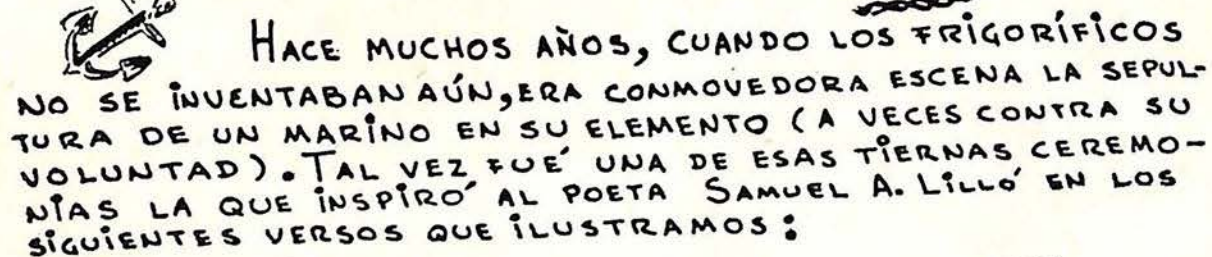 HACE MUCHOS AÑOS, CUANDO LOS FRIGORÍFICOS
NO SE INVENTABAN AÚN, ERA CONMOVEDORA ESCENA LA SEPUL-
TURA DE UN MARINO EN SU ELEMENTO (A VECES CONTRA SU
VOLUNTAD). TAL VEZ FUÉ UNA DE ESAS TIERNAS CEREMO-
NIAS LA QUE INSPIRÓ AL POETA SAMUEL A. LILLÓ EN LOS
SIGUIENTES VERSOS QUE ILUSTRAMOS: